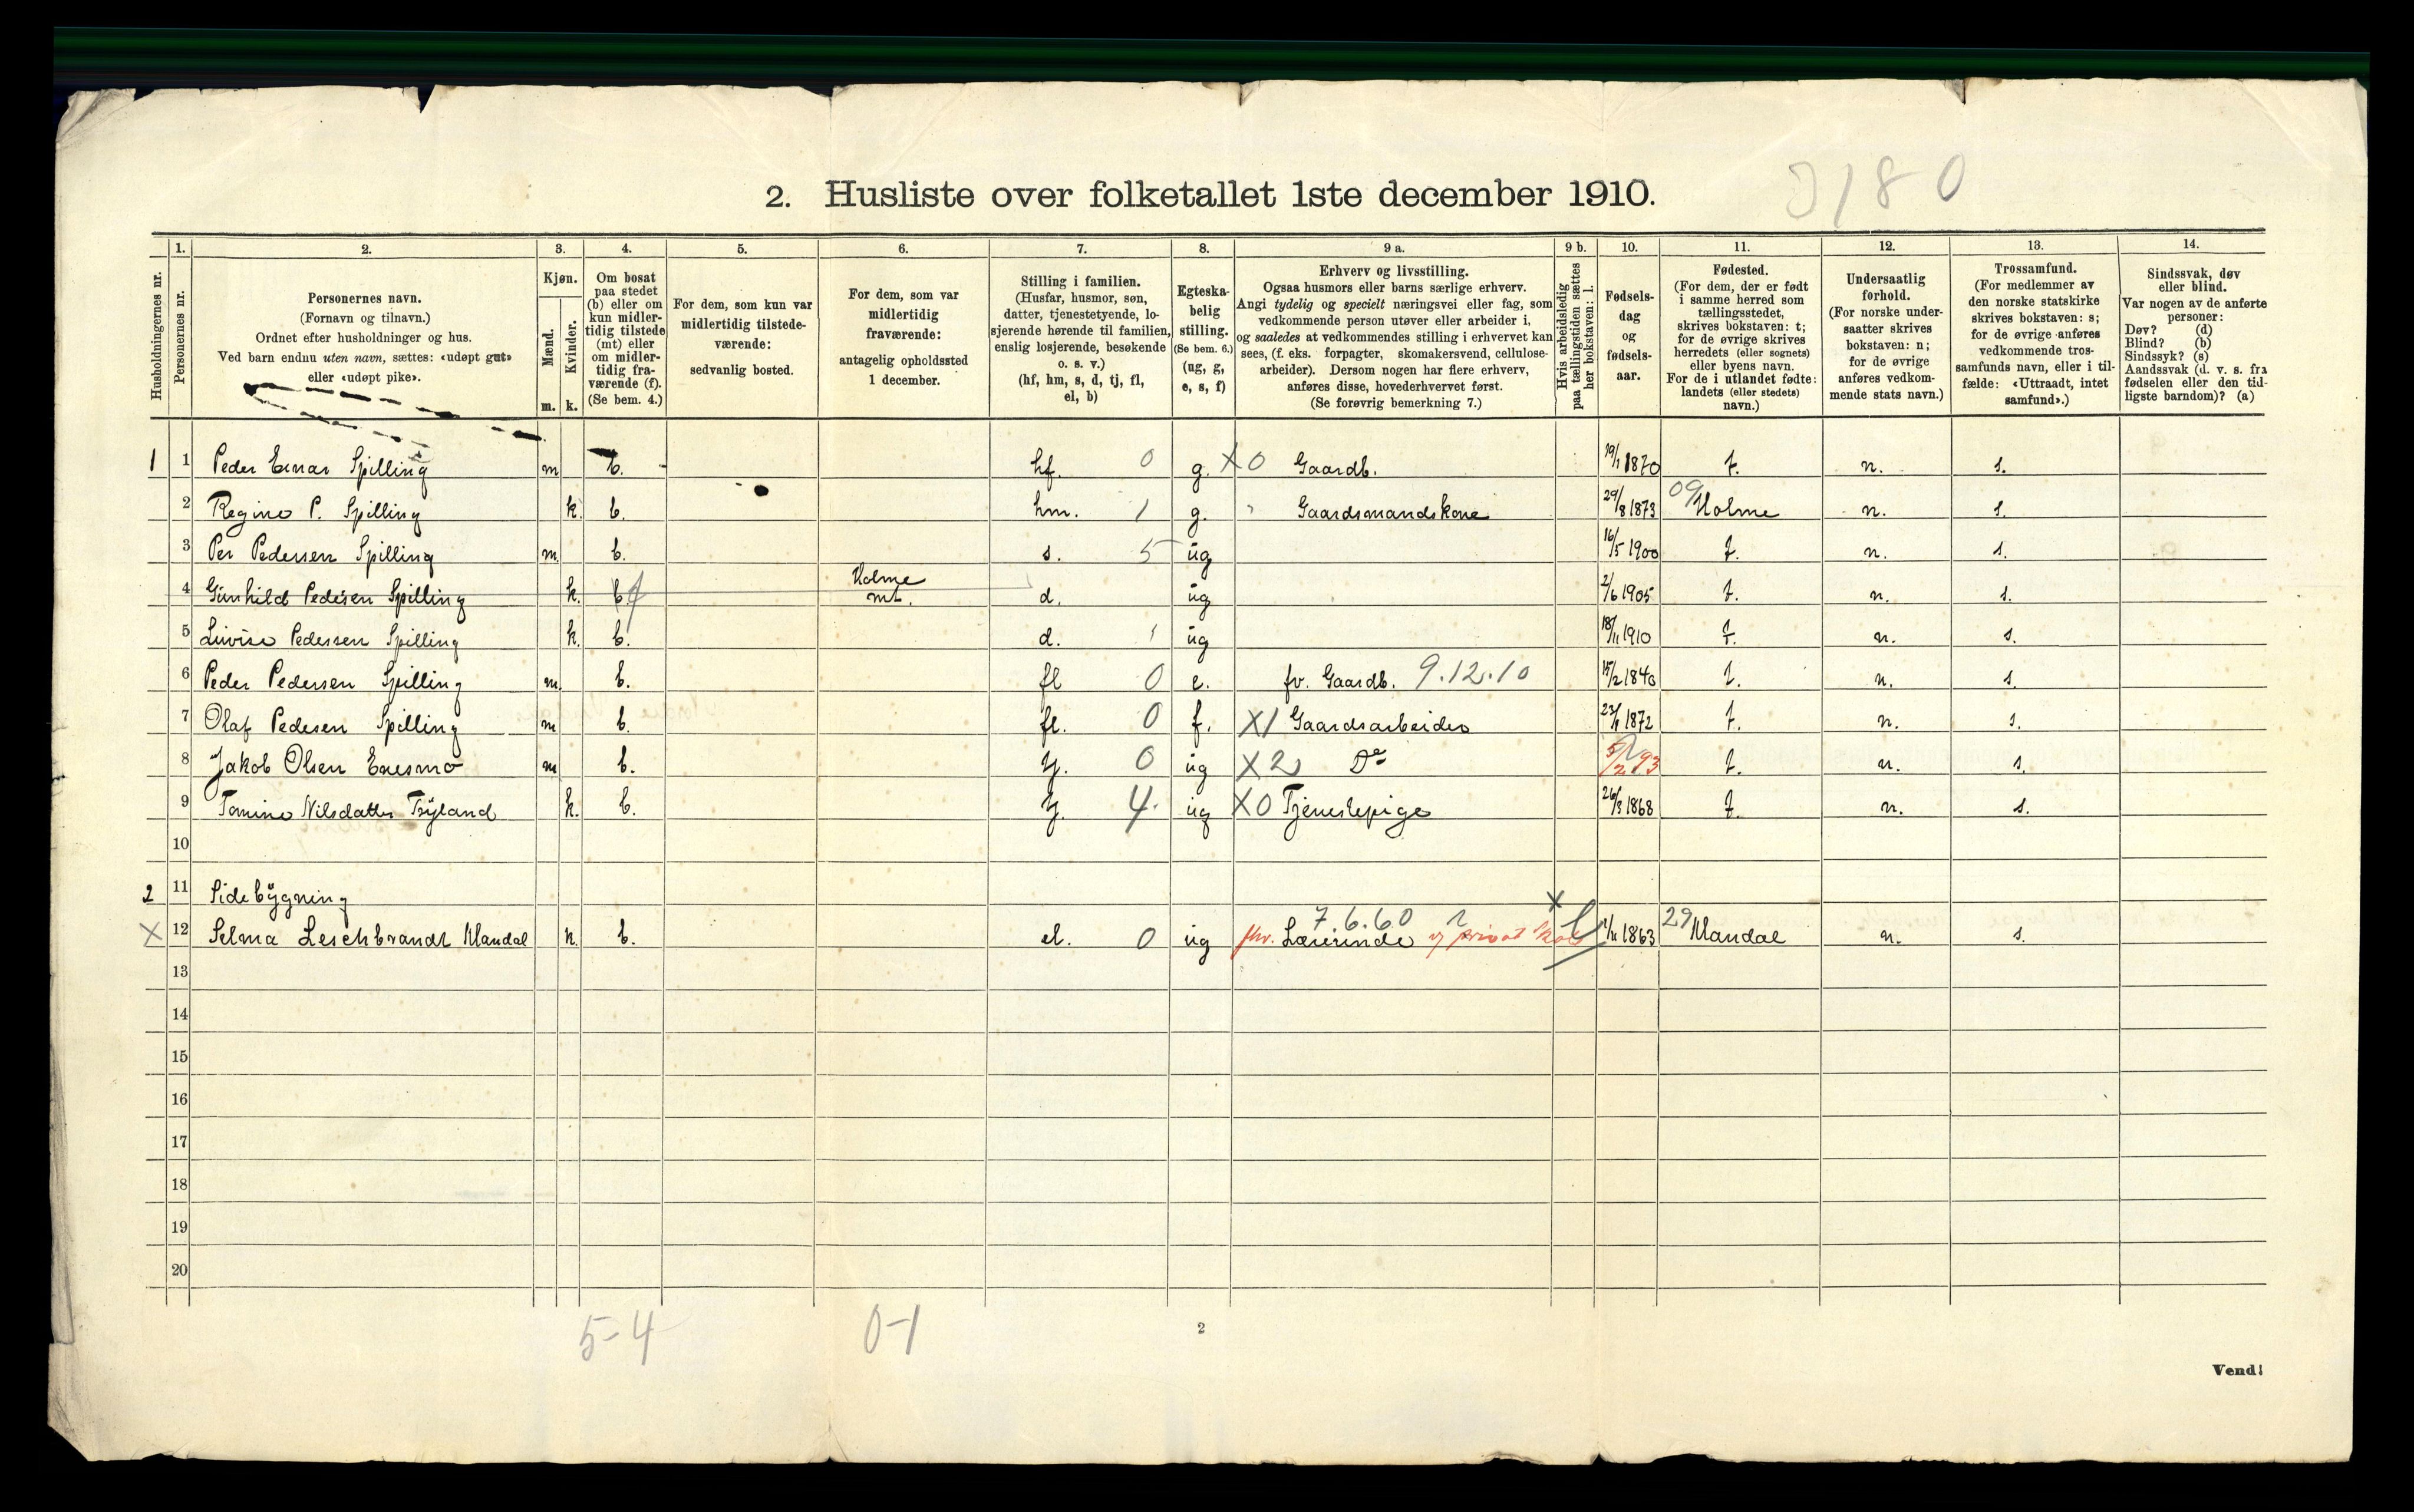 2. Husliste over folketallet 1ste december 1910.
0180
Husholdningernes nr.
1.
Personernes nr.
2.
Personernes navn.
(Fornavn og tilnavn.)
Ordnet efter husholdninger og hus.
Ved barn endnu uten navn, sættes: «udøpt gut»
eller «udøpt pike».
3.
Kjøn.
Mænd.
Kvinder.
m. k.
4.
Om bosat
paa stedet
(b) eller om
kun midler-
tidig tilstede
(mt) eller
om midler-
tidig fra-
værende (f).
(Se bem. 4.)
5.
For dem, som kun var
midlertidig tilstede-
værende:
sedvanlig bosted.
6.
For dem, som var
midlertidig
fraværende:
antagelig opholdssted
1 december.
7.
Stilling i familien.
(Husfar, husmor, søn,
datter, tjenestetyende, lo-
sjerende hørende til familien,
enslig losjerende, besøkende
o. s. v.)
(hf, hm, s, d, tj, fl,
el, b)
8.
Egteska-
belig
stilling.
(Se bem. 6.)
(ug, g,
e, s, f)
9 a.
Erhverv og livsstilling.
Ogsaa husmors eller barns særlige erhverv.
Angi tydelig og specielt næringsvei eller fag, som
vedkommende person utøver eller arbeider i,
og saaledes at vedkommendes stilling i erhvervet kan
sees, (f. eks. forpagter, skomakersvend, cellulose-
arbeider). Dersom nogen har flere erhverv,
anføres disse, hovederhvervet først.
(Se forøvrig bemerkning 7.)
9 b.
Hvis arbeidsledig
paa tællingstiden sættes
her bokstaven: l.
10.
Fødsels-
dag
og
fødsels-
aar.
11.
Fødested.
(For dem, der er født
i samme herred som
tællingsstedet,
skrives bokstaven: t;
for de øvrige skrives
herredets (eller sognets)
eller byens navn.
For de i utlandet fødte:
landets (eller stedets)
navn.)
12.
Undersaatlig
forhold.
(For norske under-
saatter skrives
bokstaven: n;
for de øvrige
anføres vedkom-
mende stats navn.)
13.
Trossamfund.
(For medlemmer av
den norske statskirke
skrives bokstaven: s;
for de øvrige anføres
vedkommende tros-
samfunds navn, eller i til-
fælde: «Uttraadt, intet
samfund».)
14.
Sindssvak, døv
eller blind.
Var nogen av de anførte
personer:
Døv? (d)
Blind? (b)
Sindssyk? (s)
Aandssvak (d. v. s. fra
fødselen eller den tid-
ligste barndom)? (a)
1 1 Peder Einar Spilling m b. hf. 0 g. X 0 Gaardb. 19/1 1870 t. n. s.
2 Regine P. Spilling k. b. hm. 1 g. Gaardsmandskone 29/8 1873 09 Holme n. s.
3 Per Pedersen Spilling m. b. s. 5 ug 16/5 1900 t. n. s.
4 Gunhild Pedersen Spilling k. b f Holme mt. d. ug 2/6 1905 t. n. s.
5 Luvise Pedersen Spilling k. b. d. 1 ug 18/11 1910 t. n. s.
6 Peder Pedersen Spilling m. b. fl 0 e. fv. Gaardb. 9.12.10 15/2 1840 t. n. s.
7 Olaf Pedersen Spilling m b. fl. 0 f. X1 Gaardsarbeider 23/1 1872 t. n. s.
8 Jakob Olsen Euesmo m b. tj. 0 ug X2 Do 5/2 93 t. n. s.
9 Tomine Nilsdatter Tryland k. b. tj. 4. ug X0 Tjenestepige 26/3 1868 t. n. s.
10
2 11 Sidebygning
X 12 Selma Leschbrandt Mandal k. b. el. 0 ug fhv. Lærerinde v privat skole 7.6.60 1/11 1863 29 Mandal n. s.
13
14
15
16
17
18
19
20
5-4
0-1
2
Vend!